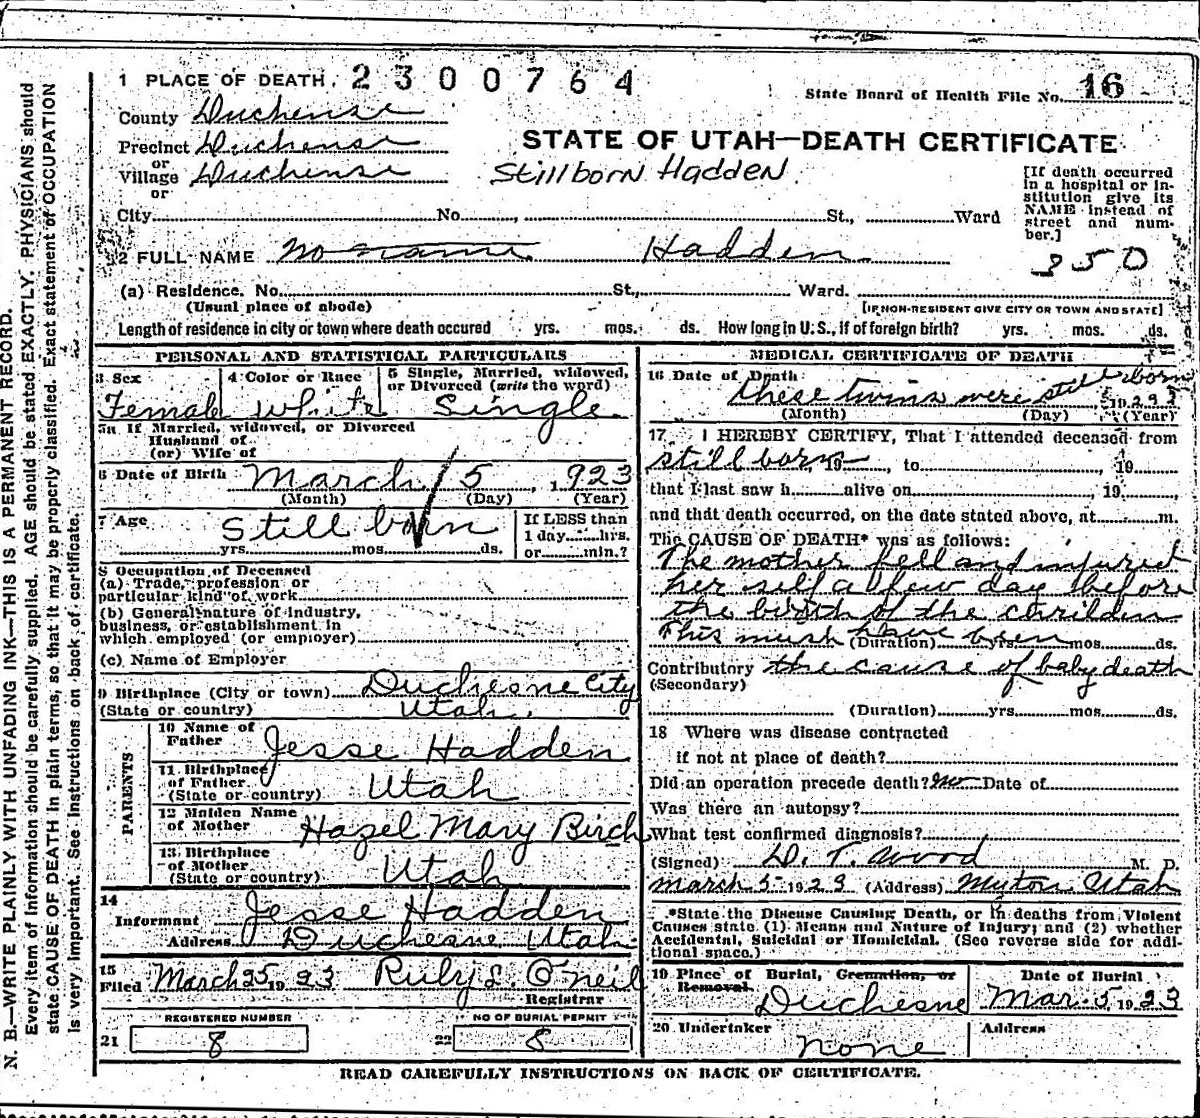 1 PLACE OF DEATH. 2300764
State Board of Health File No. 16
County Duchense
Precinct Duchense
or
Village Duchense
or
STATE OF UTAH—DEATH CERTIFICATE
Stillborn Hadden
[If death occurred
in a hospital or in-
stitution give its
NAME instead of
street and num-
ber.]
City No. St., Ward
350
2 FULL NAME No name Hadden
(a) Residence. No. St., Ward.
(Usual place of abode) [IF NON-RESIDENT GIVE CITY OR TOWN AND STATE]
Length of residence in city or town where death occured yrs. mos. ds. How long in U. S., if of foreign birth? yrs. mos. ds.
PERSONAL AND STATISTICAL PARTICULARS
3 Sex 4 Color or Race 5 Single, Married, widowed,
or Divorced (write the word)
Female White Single
5a If Married, widowed, or Divorced
Husband of
(or) Wife of
6 Date of Birth March 5, 1923
(Month) (Day) (Year)
7 Age Still born
yrs. mos. ds.
If LESS than
1 day hrs.
or min.?
8 Occupation of Deceased
(a) Trade, profession or
particular kind of work
(b) General nature of industry,
business, or establishment in
which employed (or employer)
(c) Name of Employer
9 Birthplace (City or town) Duchesne City
(State or country) Utah.
PARENTS
10 Name of
Father Jesse Hadden
11 Birthplace
of Father
(State or country) Utah
12 Maiden Name
of Mother Hazel Mary Birch
13 Birthplace
of Mother
(State or country) Utah
14
Informant Jesse Hadden
Address Duchesne Utah.
15
Filed March 25 1923 Ruby L. O'Neil
Registrar
REGISTERED NUMBER NO OF BURIAL PERMIT
21 8 22 8
MEDICAL CERTIFICATE OF DEATH
16 Date of Death:
These twins were still born
5 1923
(Month) (Day) (Year)
17. I HEREBY CERTIFY, That I attended deceased from
still born 19, to, 19
that I last saw h alive on, 19
and that death occurred, on the date stated above, at m.
The CAUSE OF DEATH* was as follows:
The mother fell and injured
her self a few day before
the birth of the children
This must have been
(Duration) yrs. mos. ds.
Contributory the cause of baby death
(Secondary)
(Duration) yrs. mos. ds.
18 Where was disease contracted
if not at place of death?
Did an operation precede death? No Date of
Was there an autopsy?
What test confirmed diagnosis?
(Signed) D. T. Wood M. D.
March 5 1923 (Address) Myton. Utah
*State the Disease Causing Death, or in deaths from Violent
Causes state (1) Means and Nature of Injury; and (2) whether
Accidental, Suicidal or Homicidal. (See reverse side for addi-
tional space.)
19 Place of Burial, Cremation, or
Removal. Duchesne
Date of Burial
Mar. 5, 1923
20 Undertaker Address
none
READ CAREFULLY INSTRUCTIONS ON BACK OF CERTIFICATE.
N. B.—WRITE PLAINLY WITH UNFADING INK—THIS IS A PERMANENT RECORD.
Every item of information should be carefully supplied. AGE should be stated EXACTLY. PHYSICIANS should
state CAUSE OF DEATH in plain terms, so that it may be properly classified. Exact statement of OCCUPATION
is very important. See instructions on back of certificate.